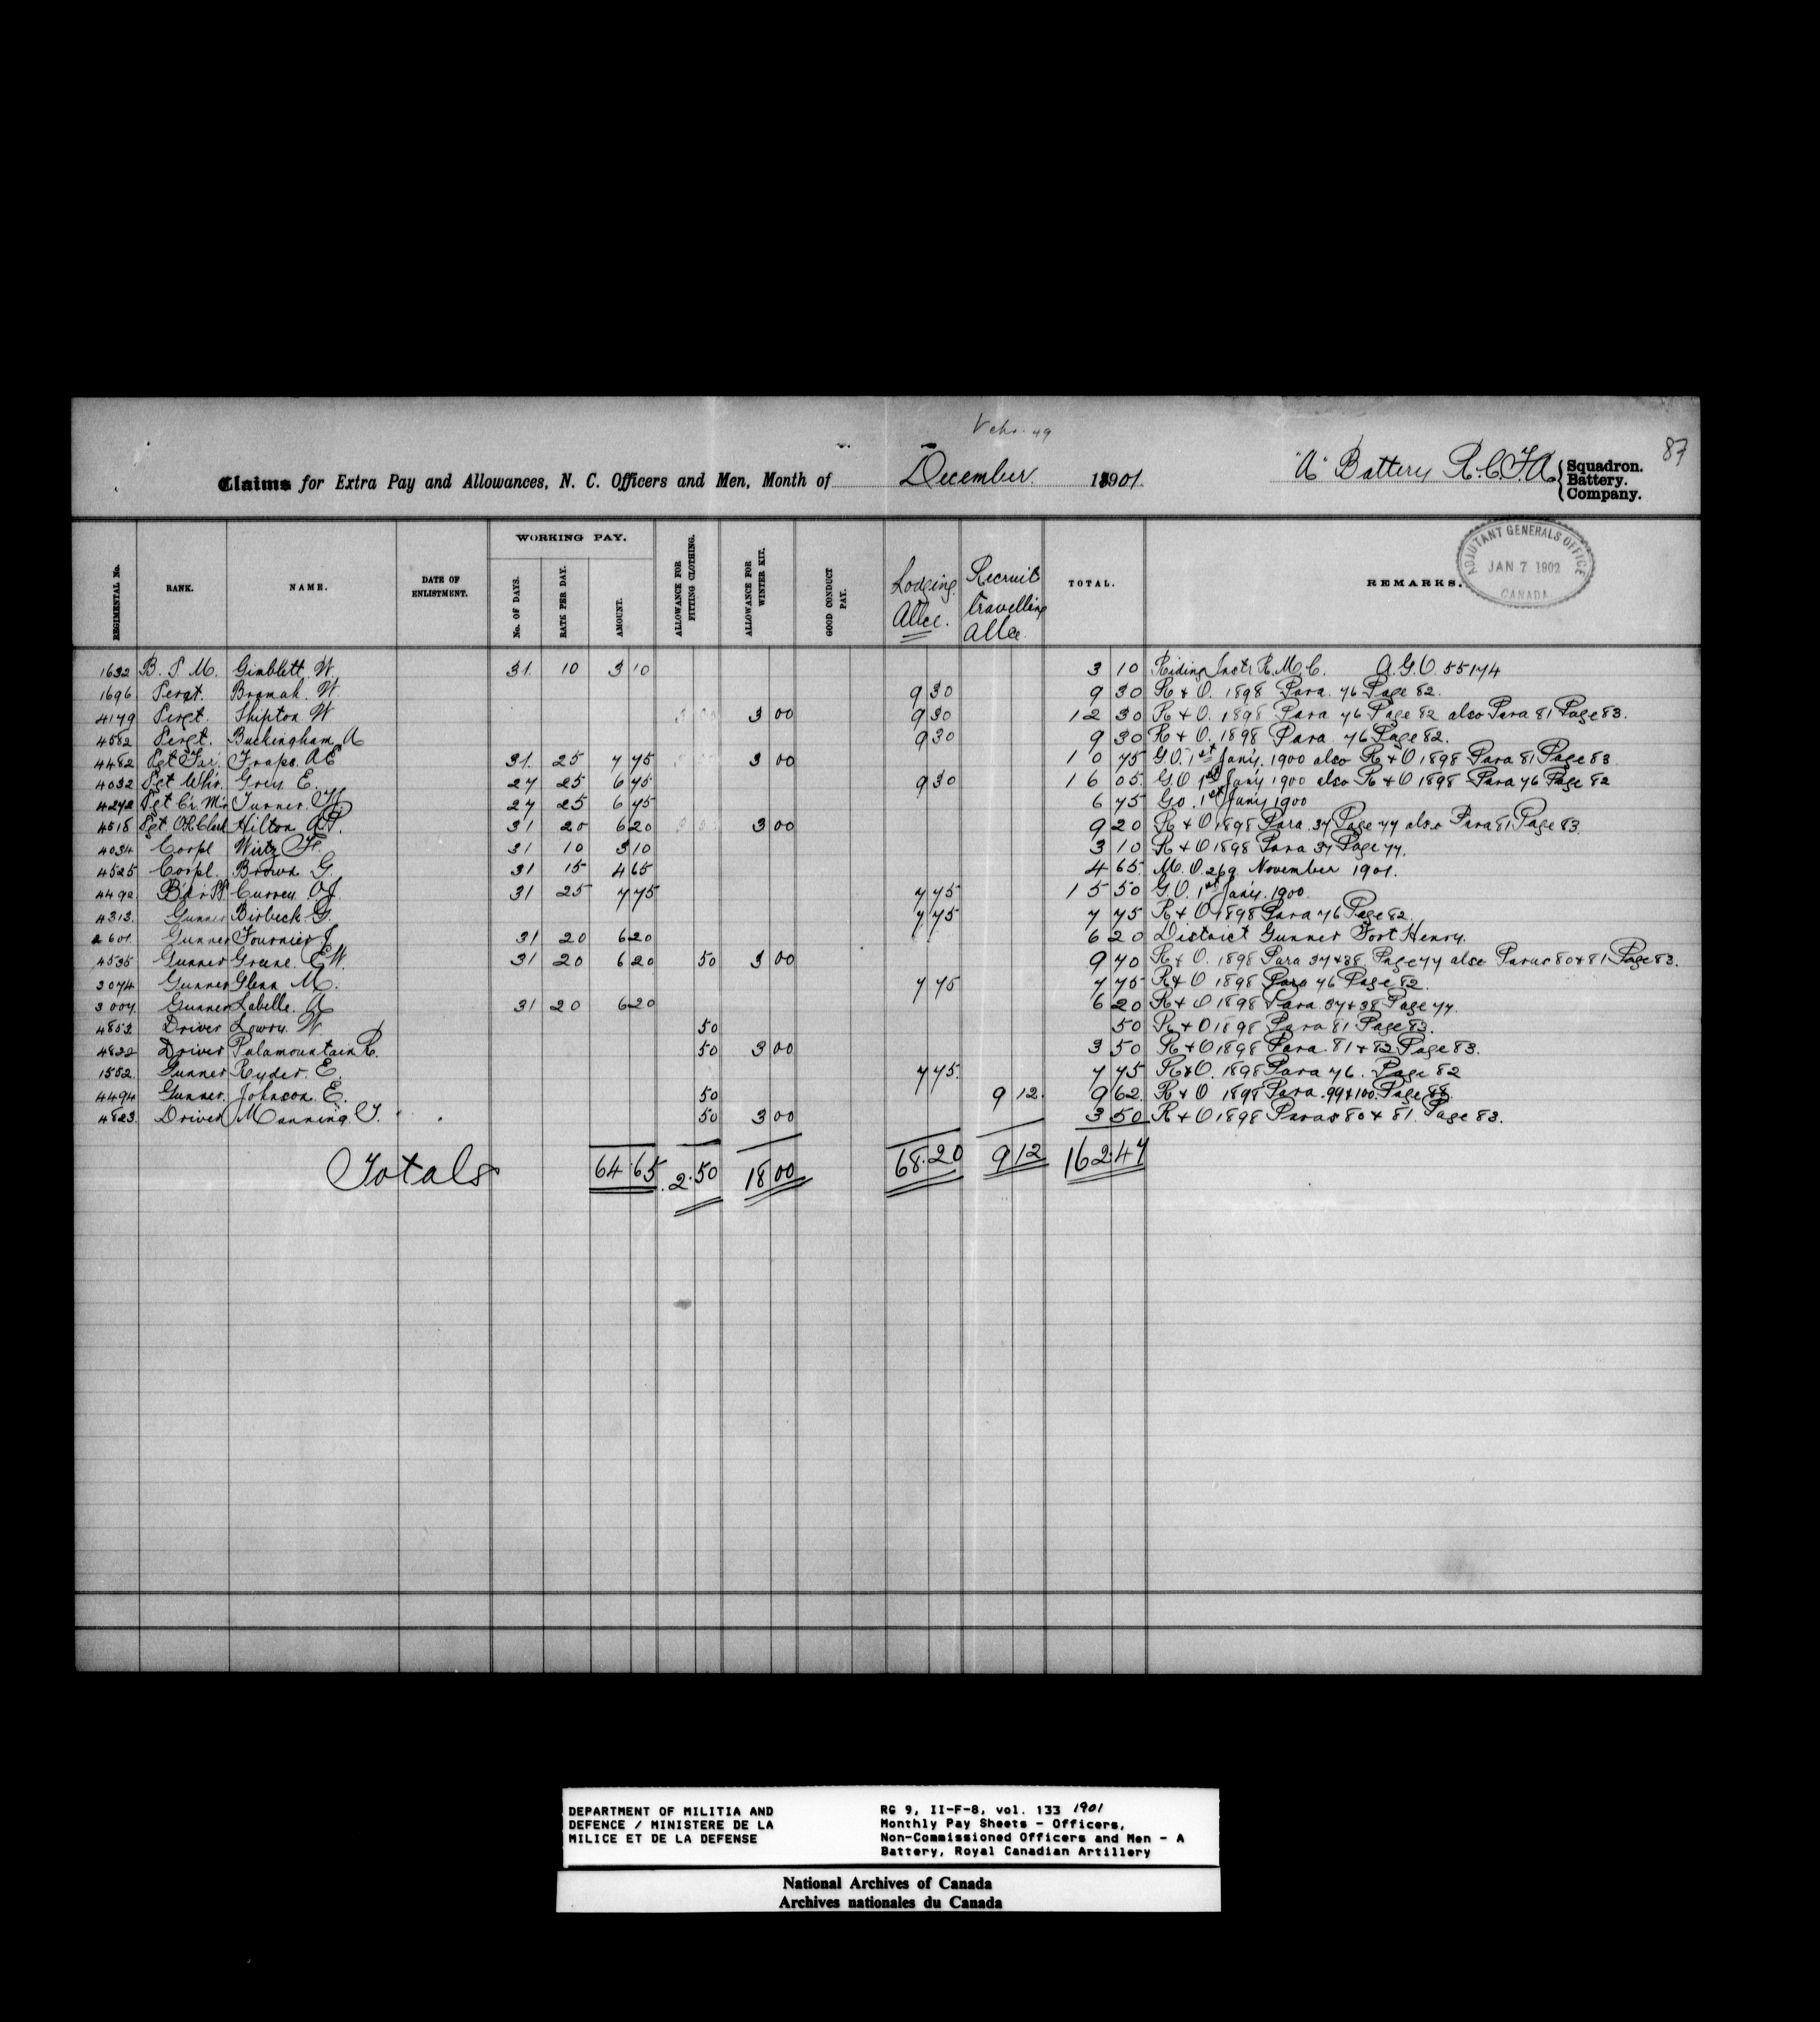 Vchr. 49
87
Claims for Extra Pay and Allowances, N. C. Officers and Men, Month of December 1901. "A" Battery R.C.F.A. { Squadron. Battery. Company.
REGIMENTAL No. RANK. NAME. DATE OF ENLISTMENT. WORKING PAY. No. OF DAYS. RATE PER DAY. AMOUNT. ALLOWANCE FOR FITTING CLOTHING. ALLOWANCE FOR WINTER KIT. GOOD CONDUCT PAY. Lodging Allce. Recruit travelling Allce. TOTAL. REMARKS.
ADJUTANT GENERALS OFFICE JAN 7 1902 CANADA
1632 B. S M. Gimblett W. 31 10 3 10 3 10 Riding Instr R.M.C. A.G.O. 55174
1696 Sergt. Bramah W. 9 30 9 30 R & O. 1898 Para. 76 Page 82.
4179 Sergt. Shipton W 3 00 9 30 12 30 R & O. 1898 Para 76 Page 82 also Para 81 Page 83.
4582 Sergt. Buckingham A 9 30 9 30 R & O. 1898 Para 76 Page 82.
4482 Sgt Far. Fraps. A E 31. 25 7 75 3 00 10 75 G.O. 1st Jany. 1900 also R & O 1898 Para 81 Page 83
4032 Sgt Whr. Grey E. 27 25 6 75 9 30 16 05 G.O 1st Jany 1900 also R & O 1898 Para 76 Page 82
4272 Sgt Cr. Mr. Turner. W. 27 25 6 75 6 75 G.O. 1st Jany 1900
4518 Sgt. O.R. Clerk Hilton A.P. 31 20 6 20 3 00 9 20 R & O 1898 Para. 37 Page 77 also Para 81 Page 83.
4034 Corpl Wirtz F. 31 10 3 10 3 10 R & O 1898 Para 37 Page 77.
4525 Corpl. Brown G. 31 15 4 65 4 65. M.O. 269 November 1901.
4492 Bdr SS Curren O J. 31 25 7 75 7 75 15 50 G.O. 1st Jany. 1900.
4313. Gunner Birbeck G. 7 75 7 75 R & O 1898 Para 76 Page 82.
2601 Gunner Fournier J 31 20 6 20 6 20 District Gunner Fort Henry.
4535 Gunner Greene. E W. 31 20 6 20 50 3 00 9 70 R & O. 1898 Para 37 & 38 Page 77 also Paras 80 & 81 Page 83.
3074 Gunner Glenn M. 7 75 7 75 R & O 1898 Para 76 Page 82.
3007 Gunner Labelle. A 31 20 6 20 6 20 R & O 1898 Para. 37 & 38 Page 77.
4853 Driver Lowry. W. 50 50 R & O 1898 Para 81 Page 83.
4822 Driver Palamountain R. 50 3 00 3 50 R & O 1898 Para. 81 & 82 Page 83.
1552. Gunner Ryder. E. 7 75. 7 75 R & O. 1898 Para 76. Page 82
4494 Gunner. Johnson E. 50 9 12. 9 62. R & O 1898 Para. 99 & 100. Page 88
4823 Driver Manning. T. 50 3 00 3 50 R & O 1898 Paras 80 & 81. Page 83.
Totals 64.65 2.50 18 00 68.20 9 12 162.47
DEPARTMENT OF MILITIA AND
DEFENCE / MINISTERE DE LA
MILICE ET DE LA DEFENSE
RG 9, II-F-8, vol. 133 1901
Monthly Pay Sheets - Officers,
Non-Commissioned Officers and Men - A
Battery, Royal Canadian Artillery
National Archives of Canada
Archives nationales du Canada